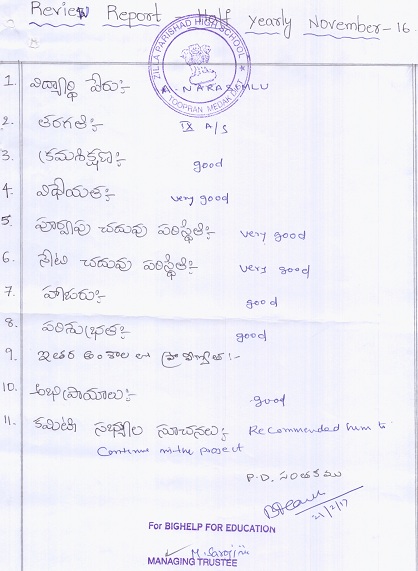 Review Report Half Yearly November-16
ZILLA PARISHAD HIGH SCHOOL
TOOPRAN MEDAK DIST
1. విద్యార్థి పేరు:- NARASIMLU
2. తరగతి:- IX A/S
3. క్రమశిక్షణ:- good
4. విధేయత:- very good
5. పూర్వపు చదువు పరిస్థితి:- very good
6. నేటి చదువు పరిస్థితి:- very good
7. హాజరు:- good
8. పరిశుభ్రత:- good
9. ఇతర అంశాల లో ప్రావీణ్యత:-
10. అభిప్రాయాలు:- good
11. కమిటి సభ్యుల సూచనలు:- Recommended him to
Continue in the project
P.D. సంతకము
21/2/17
For BIGHELP FOR EDUCATION
M. Sarojini
MANAGING TRUSTEE